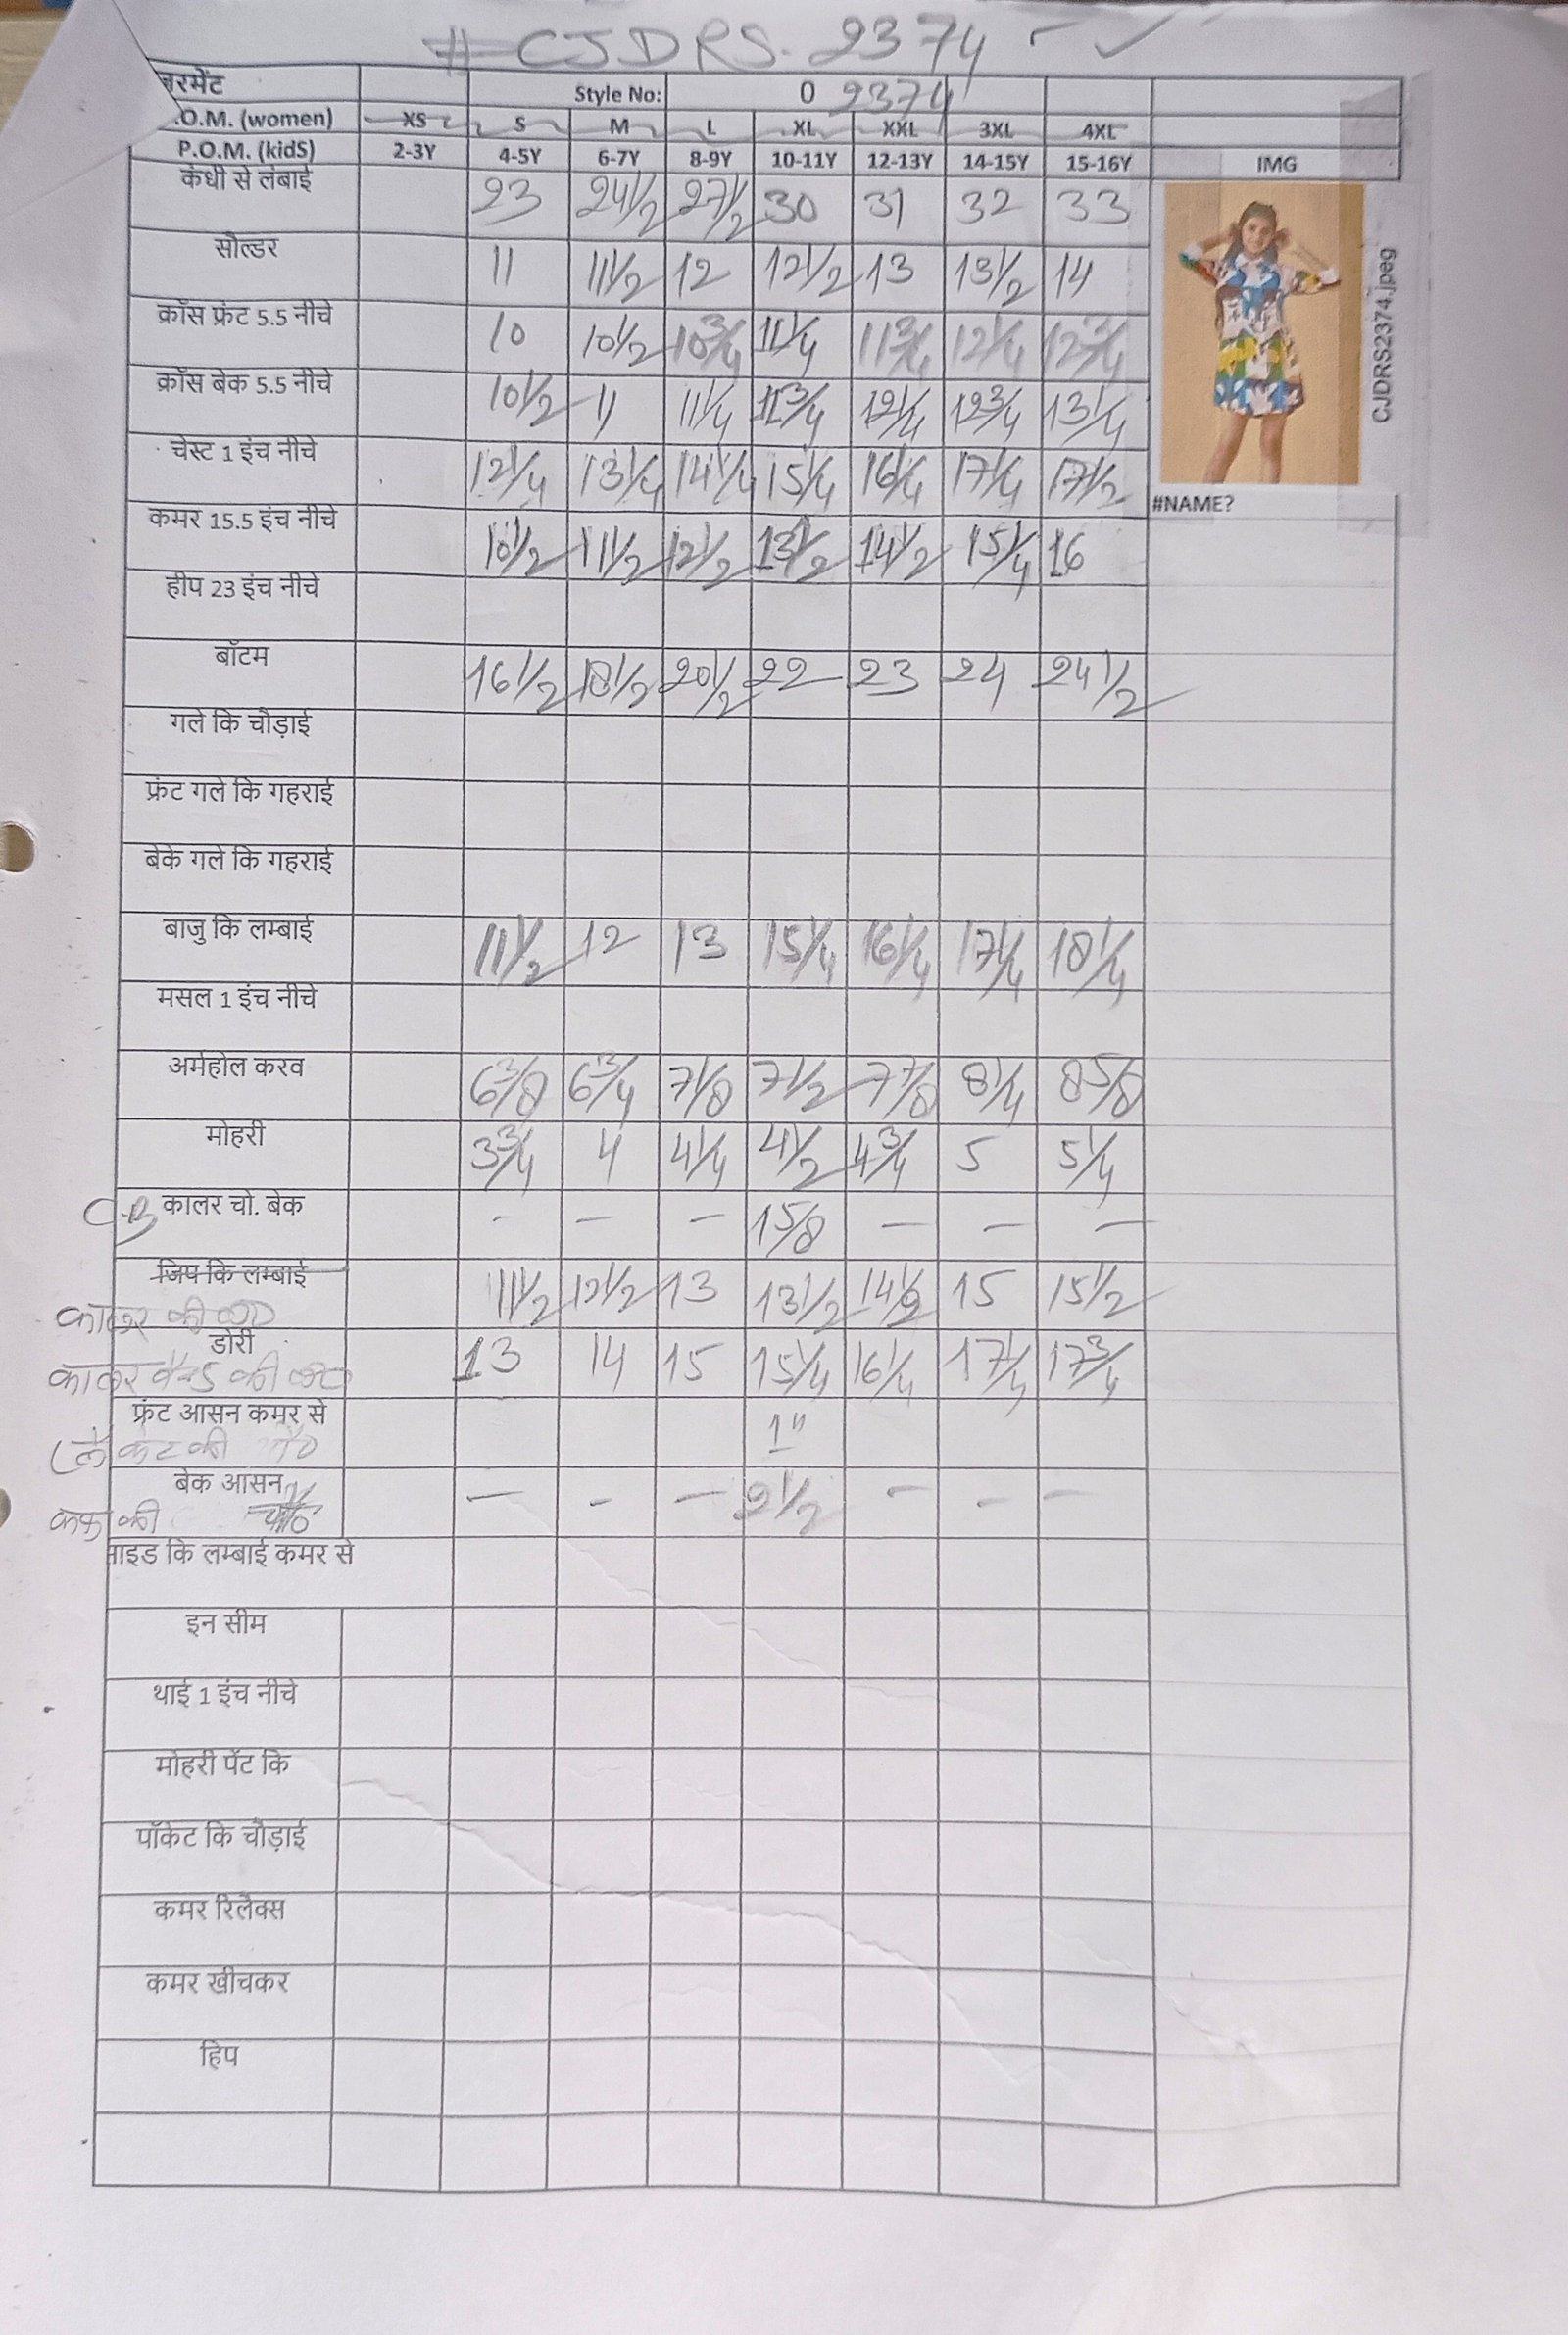 # CJDRS. 2374
Style No: 0 2374
.O.M. (women) XS S M L XL XXL 3XL 4XL
P.O.M. (kidS) 2-3Y 4-5Y 6-7Y 8-9Y 10-11Y 12-13Y 14-15Y 15-16Y IMG
कंधी से लंबाई 23 24 1/2 27 1/2 30 31 32 33
सोल्डर 11 11 1/2 12 12 1/2 13 13 1/2 14
CJDRS2374.jpeg
क्रॉस फ्रंट 5.5 नीचे 10 10 1/2 10 3/4 11 1/4 11 3/4 12 1/4 12 3/4
क्रॉस बेक 5.5 नीचे 10 1/2 11 11 1/4 11 3/4 12 1/4 12 3/4 13 1/4
चेस्ट 1 इंच नीचे 12 1/4 13 1/4 14 1/4 15 1/4 16 1/4 17 1/4 17 1/2
#NAME?
कमर 15.5 इंच नीचे 10 1/2 11 1/2 12 1/2 13 1/2 14 1/2 15 1/4 16
हीप 23 इंच नीचे
बॉटम 16 1/2 18 1/2 20 1/2 22 23 24 24 1/2
गले कि चौड़ाई
फ्रंट गले कि गहराई
बेके गले कि गहराई
बाजु कि लम्बाई 11 1/2 12 13 15 1/4 16 1/4 17 1/4 18 1/4
मसल 1 इंच नीचे
अर्महोल करव 6 3/8 6 3/4 7 1/8 7 1/2 7 7/8 8 1/4 8 5/8
मोहरी 3 3/4 4 4 1/4 4 1/2 4 3/4 5 5 1/4
कालर चो. बेक - - - 15/8 - - -
जिप कि लम्बाई 11 1/2 12 1/2 13 13 1/2 14 1/2 15 15 1/2
कालर की
डोरी 13 14 15 15 1/4 16 1/4 17 1/4 17 3/4
कालर की
फ्रंट आसन कमर से 1"
की
बेक आसन - - - 2 1/2 - - -
कफ की
ाइड कि लम्बाई कमर से
इन सीम
थाई 1 इंच नीचे
मोहरी पेंट कि
पॉकेट कि चौड़ाई
कमर रिलैक्स
कमर खीचकर
हिप